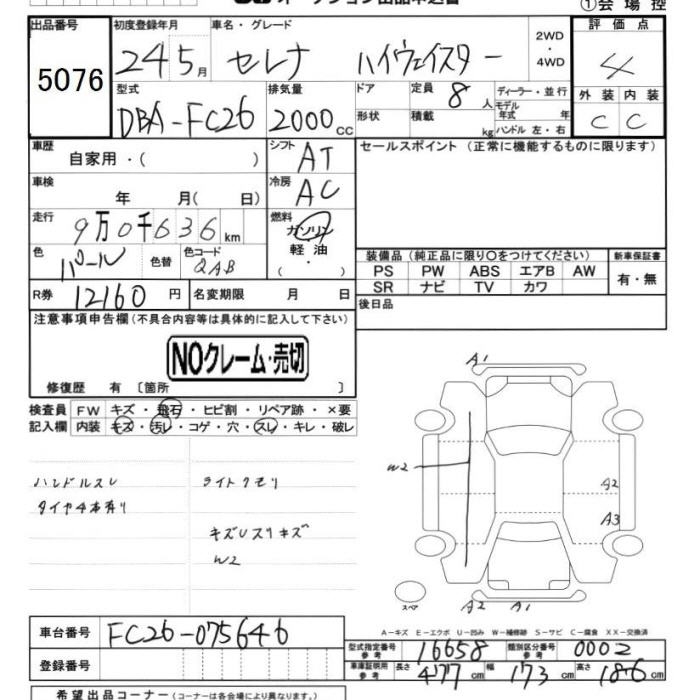 ①会場控
出品番号 初度登録年月 車名・グレード 2WD・4WD 評価点
5076 24 5月 セレナ ハイウェイスター 4
型式 排気量 ドア 定員 8人 ディーラー・並行 外装 内装
DBA-FC26 2000cc 形状 積載 kg モデル年式 年 ハンドル 左・右 C C
車歴 自家用・( ) シフト AT セールスポイント (正常に機能するものに限ります)
車検 年 月( 日) 冷房 AC
走行 9万0千636km 燃料 ガソリン
色 パール 色替 色コード QAB 軽油・( )
装備品(純正品に限り○をつけてください) 新車保証書
PS PW ABS エアB AW 有・無
SR ナビ TV カワ
R券 12160円 名変期限 月 日 後日品
注意事項申告欄(不具合内容等は具体的に記入して下さい)
NOクレーム・売切
修復歴 有 〔箇所 〕
検査員 FW キズ・飛石・ヒビ割・リペア跡・×要
記入欄 内装 キズ・汚レ・コゲ・穴・スレ・キレ・破レ
ハンドルスレ ライトクモリ
タイヤ4本有り
キズUスリキズ
W2
A1
W2
A2
A3
スペア
A2 A1
A-キズ E-エクボ U-凹み W-補修跡 S-サビ C-腐食 XX-交換済
車台番号 FC26-075646
型式指定番号 参考 16658 類別区分番号 参考 0002
登録番号 車庫証明用 参考 長さ 477cm 幅 173cm 高さ 186cm
希望出品コーナー (コーナーは各会場により異なります。)